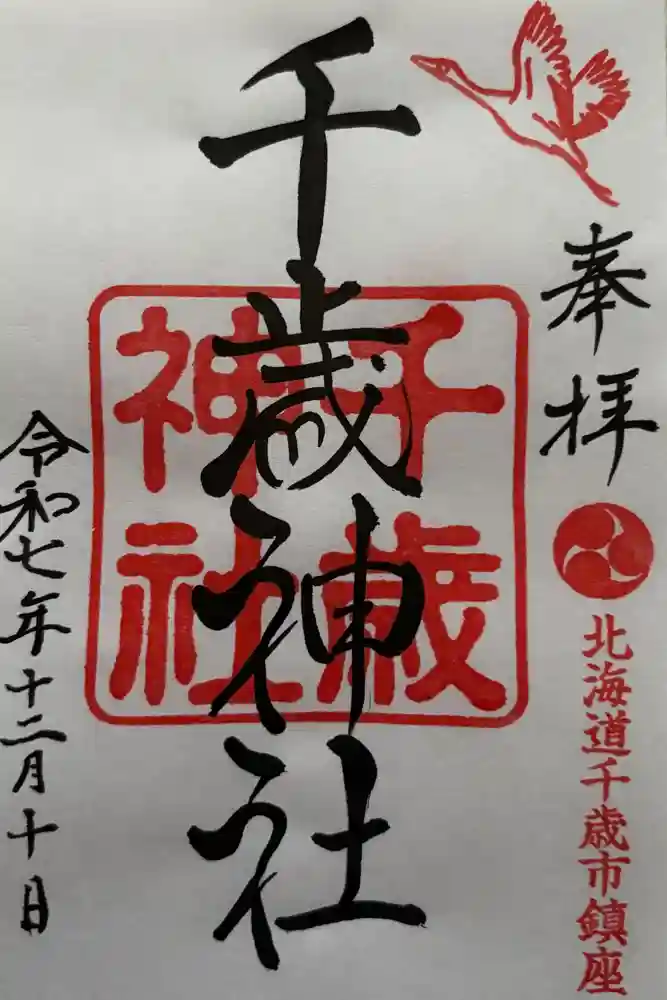 奉拝
北海道千歳市鎮座
千歳神社
千歳
神社
令和七年十二月十日